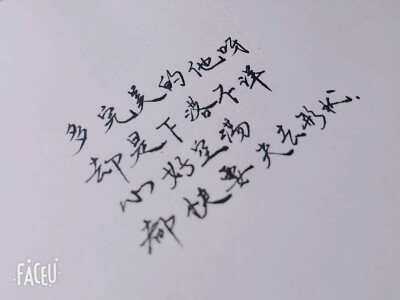 多完美的他呀
却是下落不详
心好空荡
都快要失去形状.
FACEU